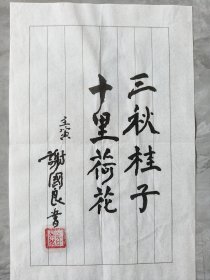 三秋桂子
十里荷花
壬寅
謝國良書